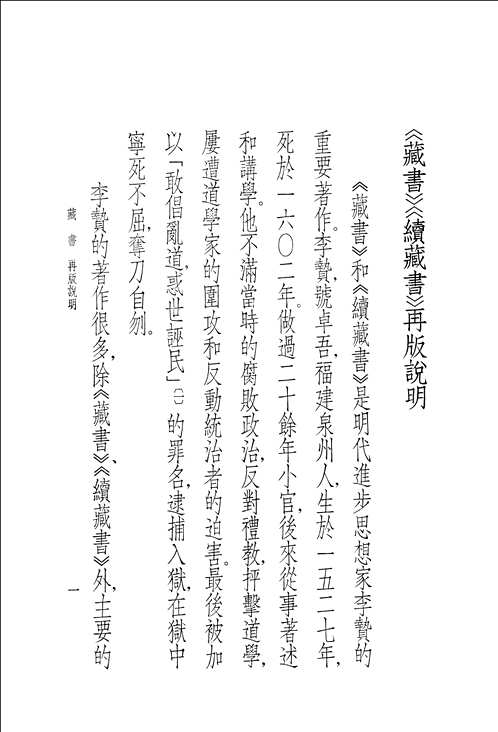 《藏書》《續藏書》再版說明
《藏書》和《續藏書》是明代進步思想家李贄的
重要著作。李贄，號卓吾，福建泉州人，生於一五二七年，
死於一六〇二年。做過二十餘年小官，後來從事著述
和講學。他不滿當時的腐敗政治，反對禮教，抨擊道學，
屢遭道學家的圍攻和反動統治者的迫害。最後被加
以「敢倡亂道，惑世誣民」〔一〕的罪名，逮捕入獄，在獄中
寧死不屈，奪刀自刎。
李贄的著作很多，除《藏書》、《續藏書》外，主要的
藏書 再版說明
一